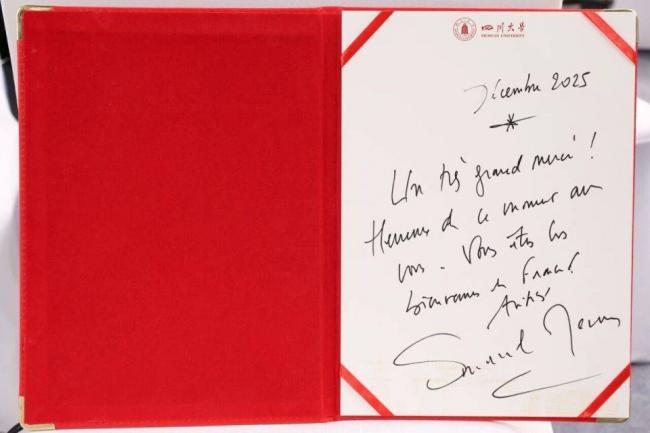 四川大学
SICHUAN UNIVERSITY
Décembre 2025
Un très grand merci !
Heureux de ce moment avec
vous. Vous êtes les
bienvenus en France !
Amitiés